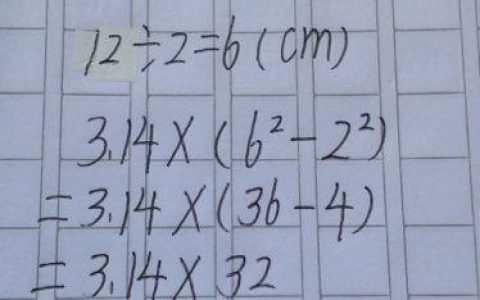 12÷2=6(cm)
3.14×(6²-2²)
=3.14×(36-4)
=3.14×32